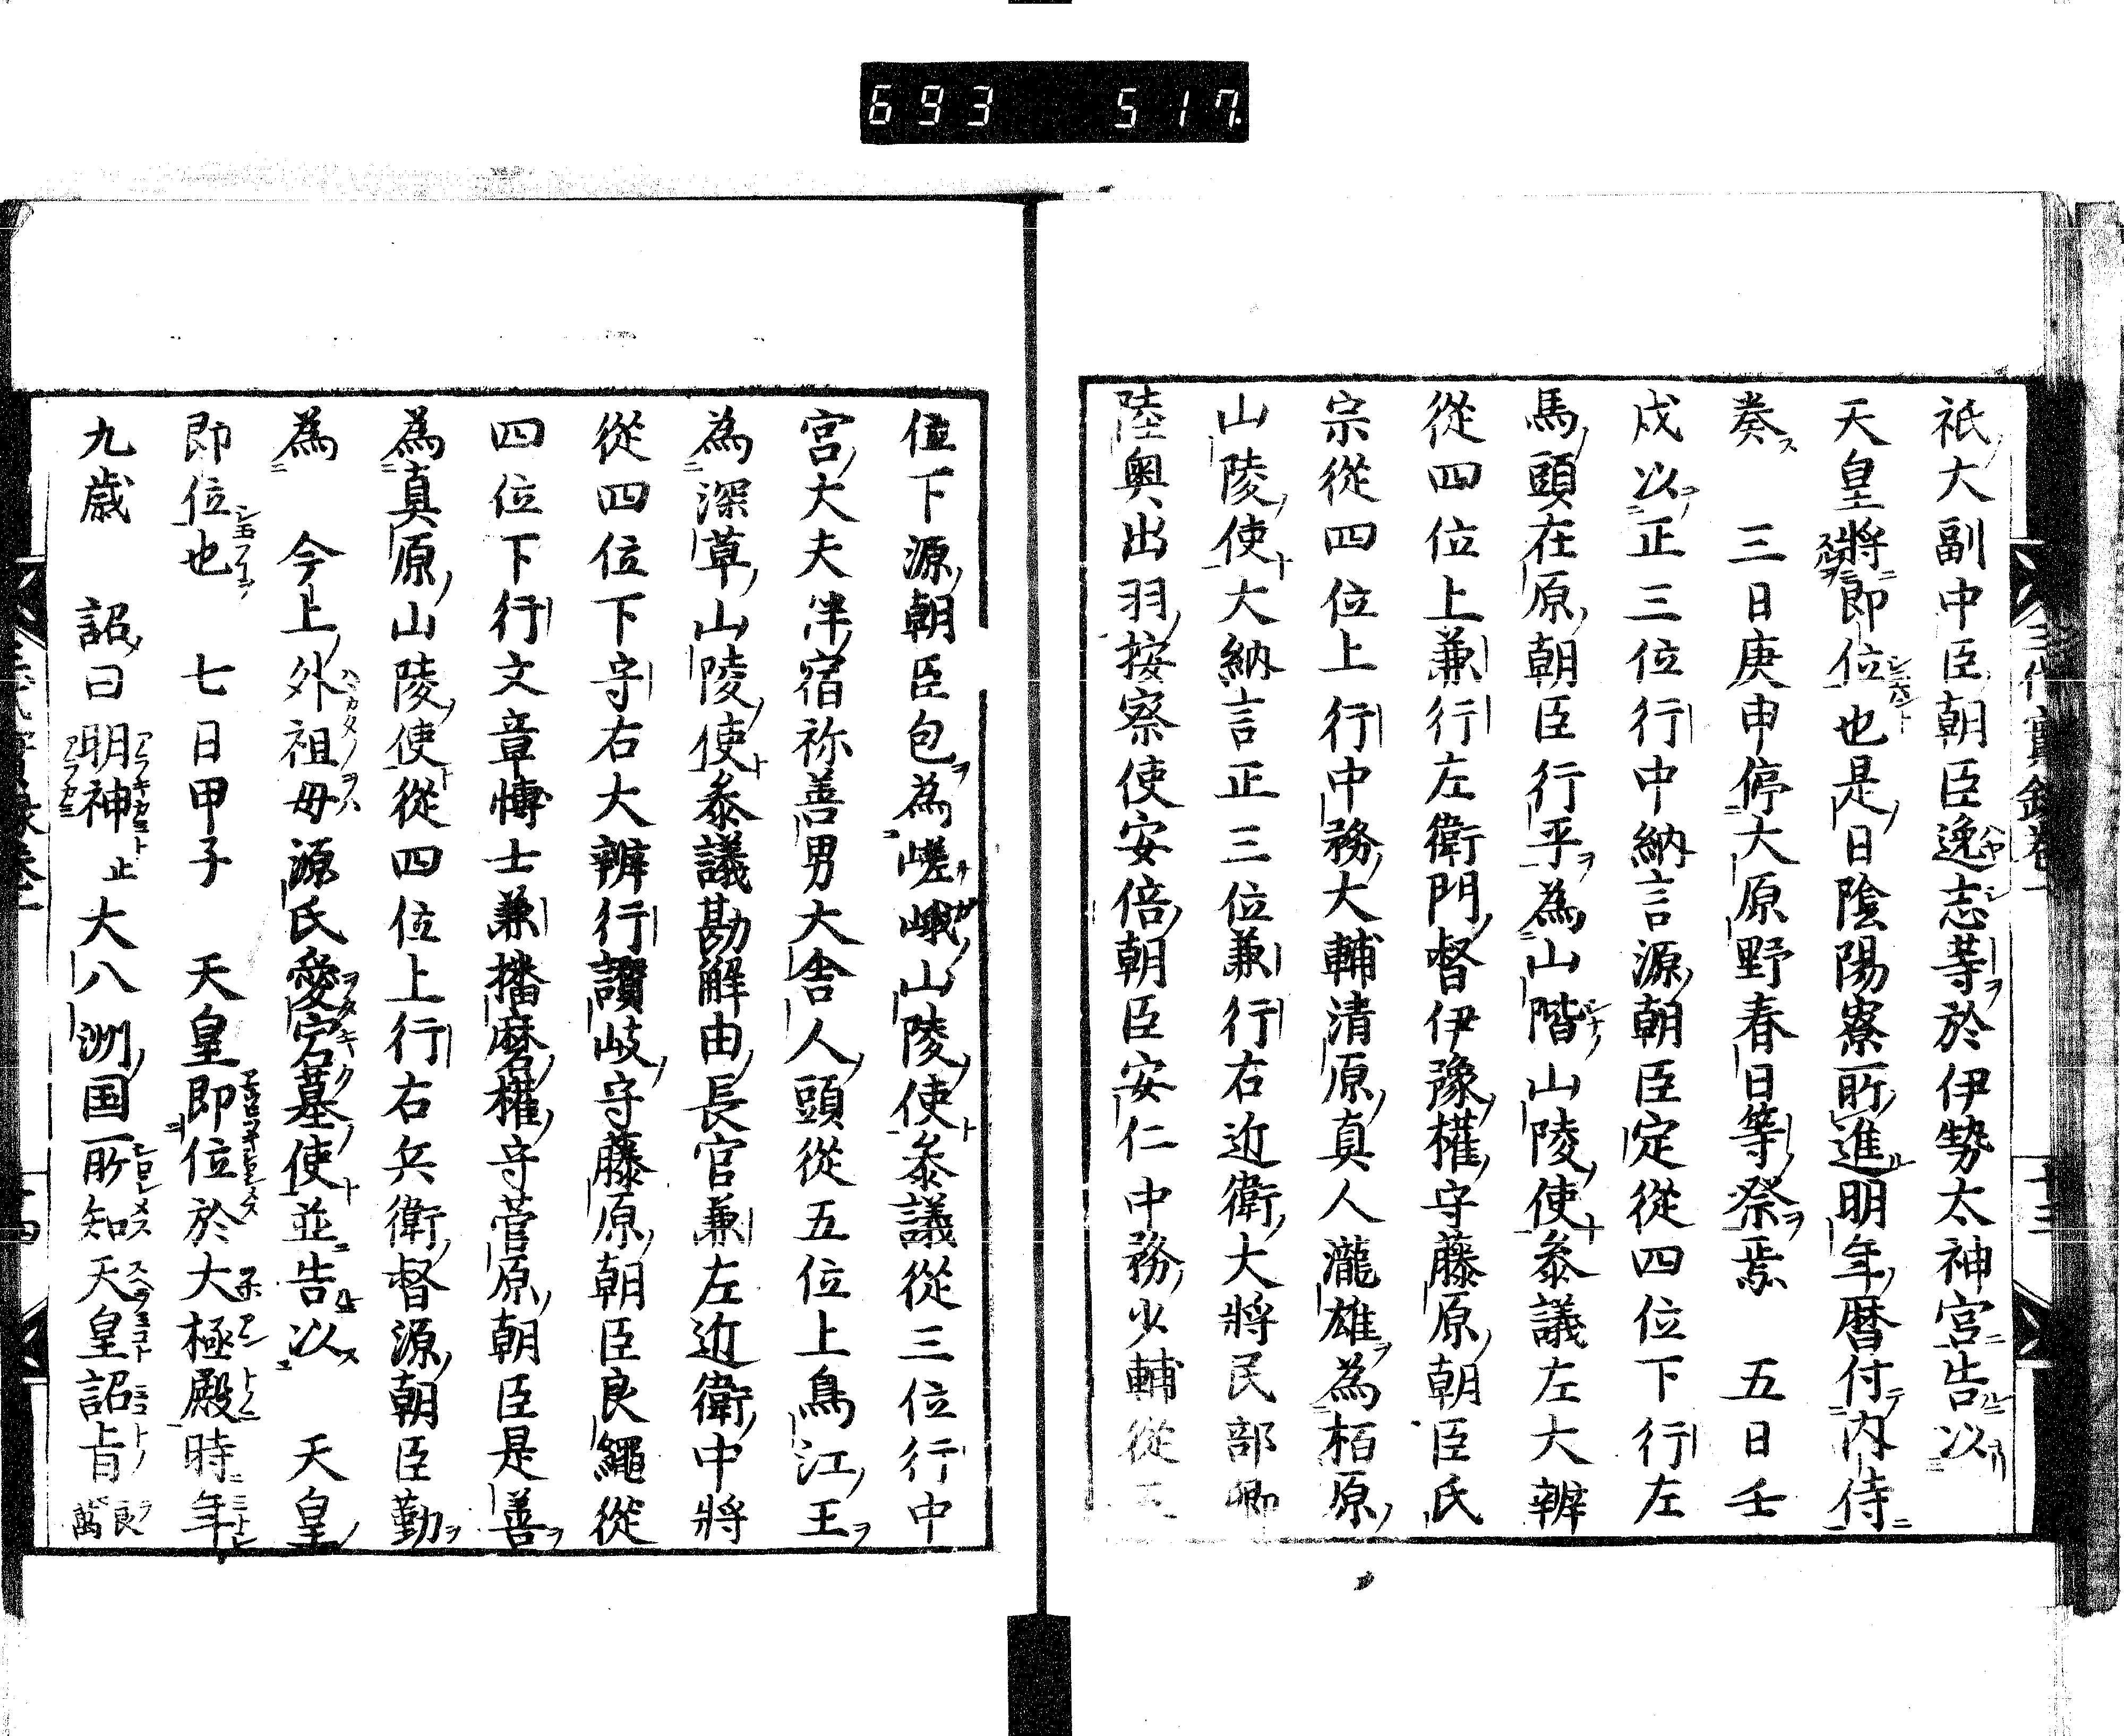 693 517
祇大副中臣朝臣逸志等於伊勢太神宮告以
天皇將即位也是日陰陽寮所進明年暦付内侍
奏 三日庚申停大原野春日等祭焉 五日壬
戌以正三位行中納言源朝臣定從四位下行左
馬頭在原朝臣行平為山階山陵使參議左大辨
從四位上兼行左衛門督伊豫權守藤原朝臣氏
宗從四位上行中務大輔清原真人瀧雄為柏原
山陵使大納言正三位兼行右近衛大將民部卿
陸奧出羽按察使安倍朝臣安仁中務少輔從五
位下源朝臣包為嵯峨山陵使參議從三位行中
宮大夫伴宿祢善男大舎人頭從五位上鳥江王
為深草山陵使參議勘解由長官兼左近衛中將
從四位下守右大辨行讃岐守藤原朝臣良繩從
四位下行文章博士兼播磨權守菅原朝臣是善
為真原山陵使從四位上行右兵衛督源朝臣勤
為 今上外祖母源氏愛宕墓使並告以 天皇
即位也 七日甲子 天皇即位於大極殿時年
九歳 詔曰明神止大八洲国所知天皇詔旨良萬